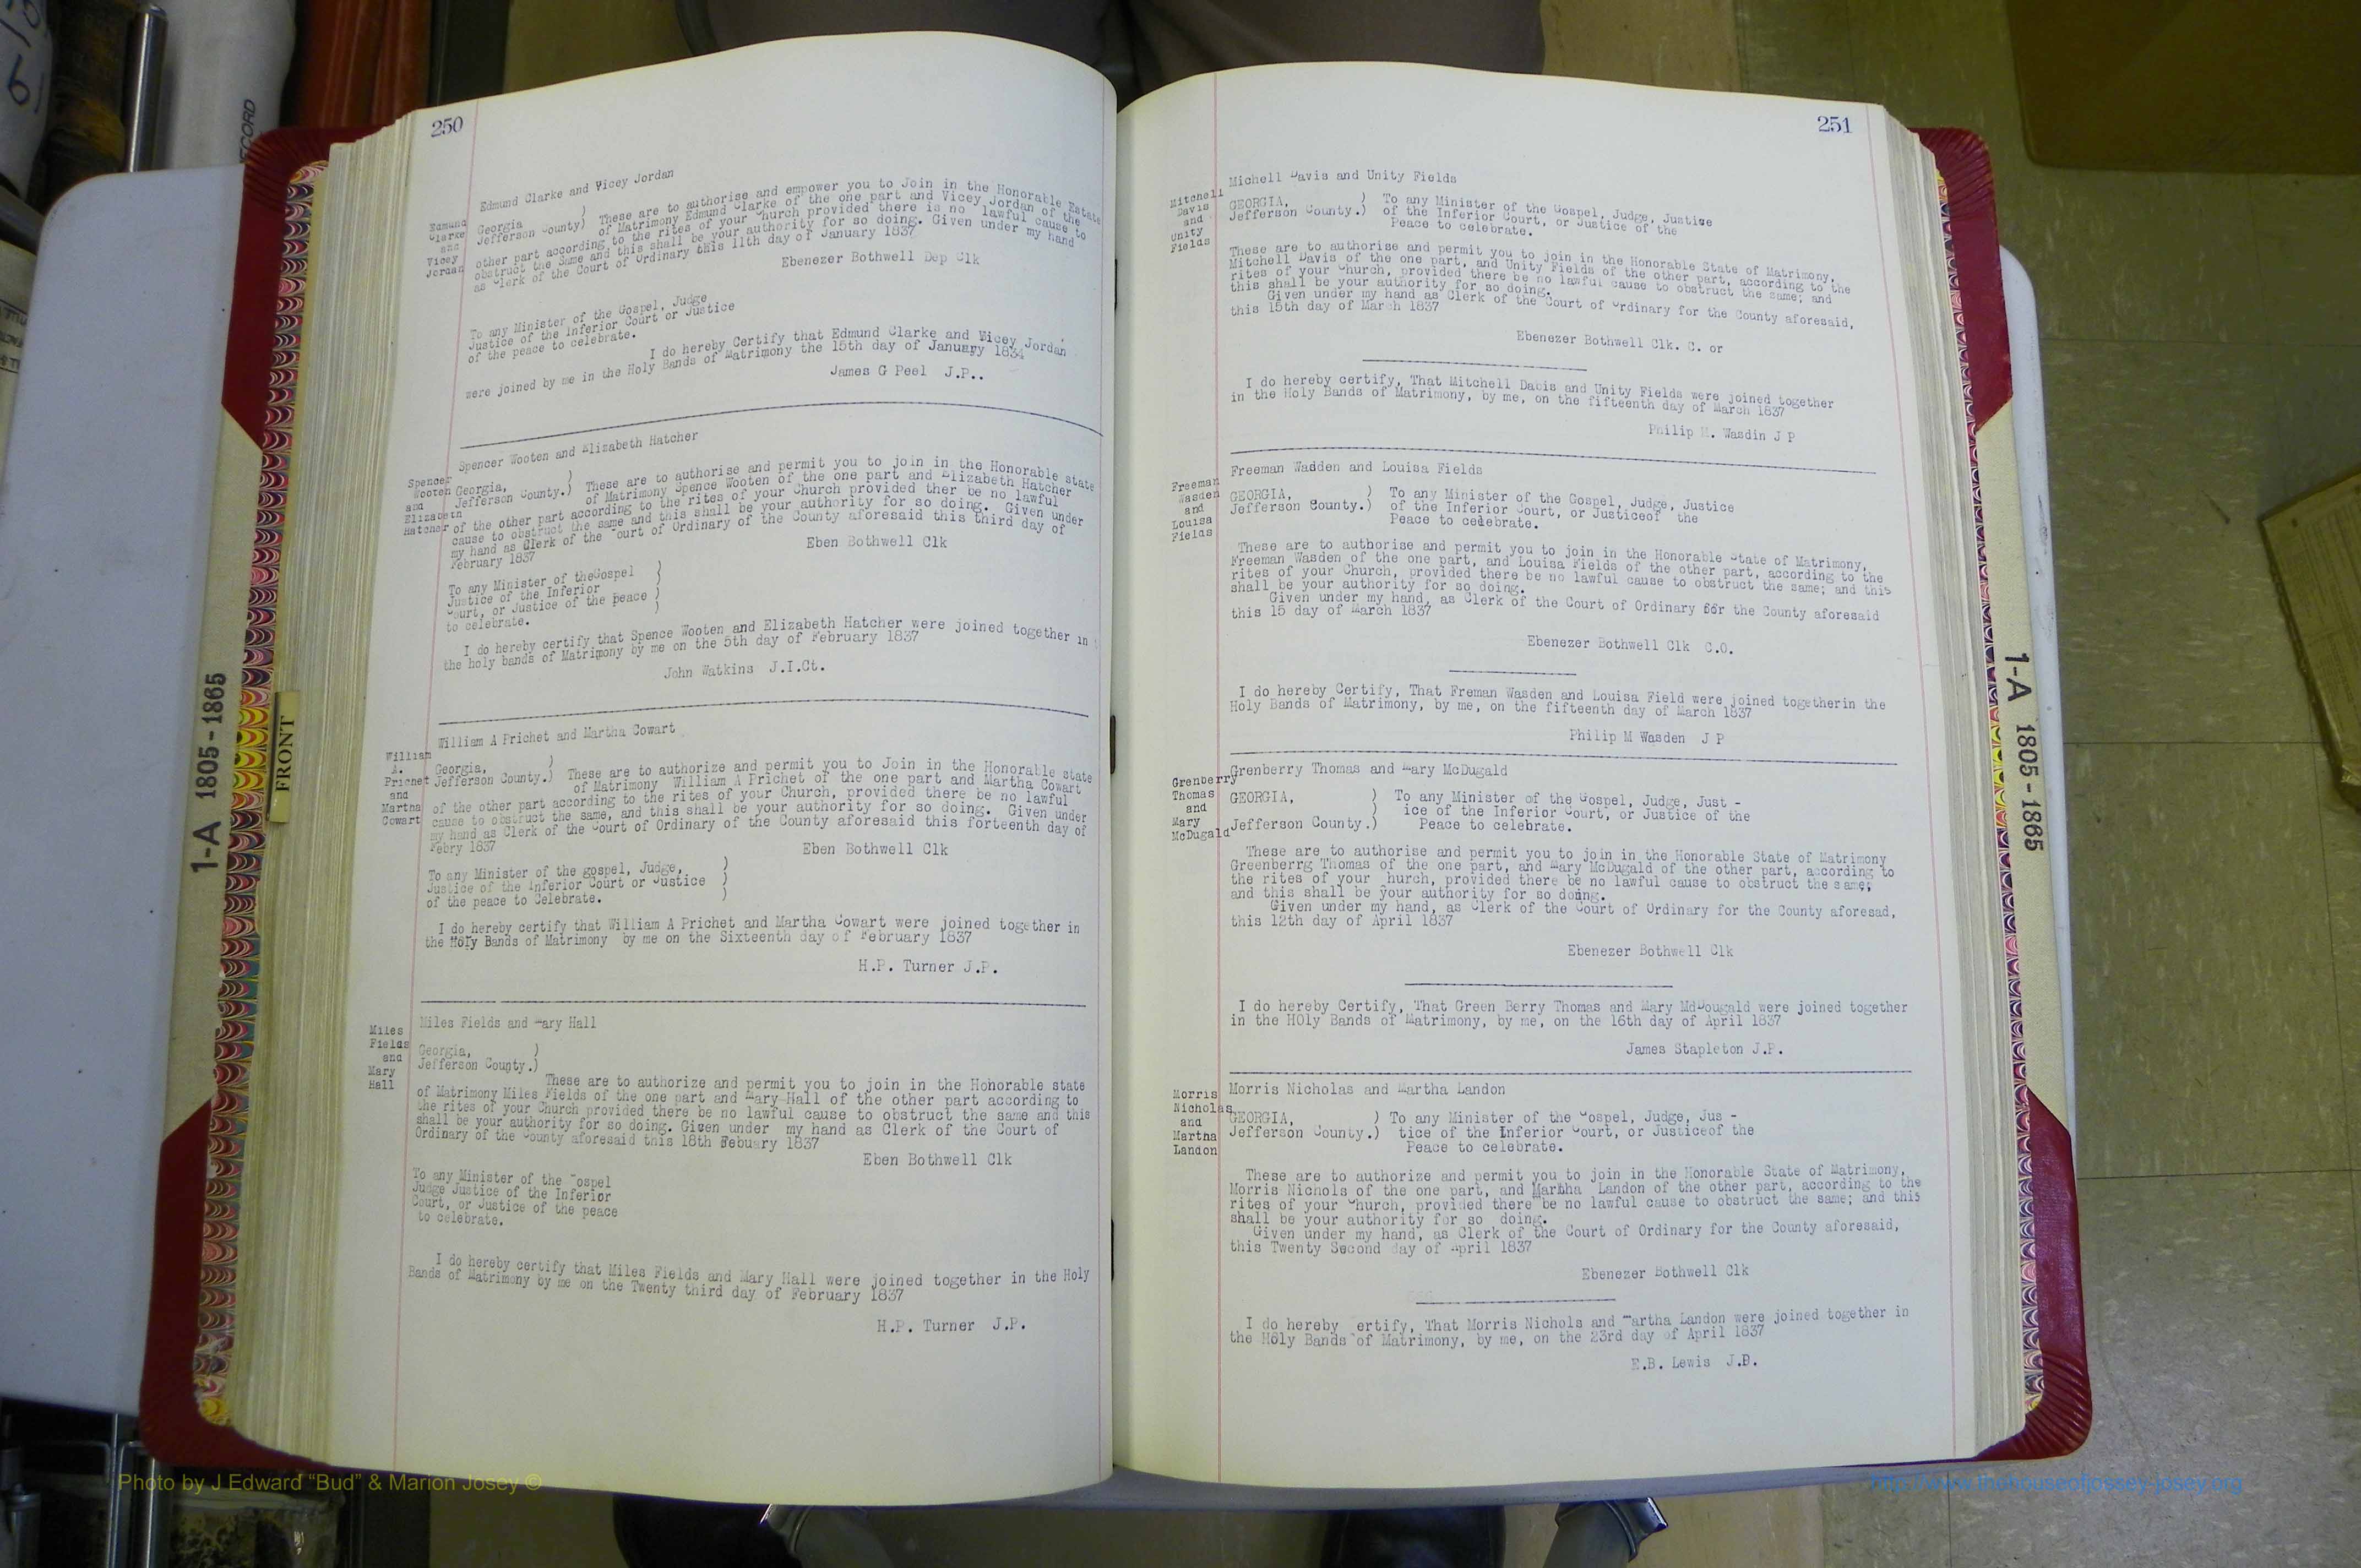 250
Edmund Clarke and Vicey Jordan
Edmund
Clarke
and
Vicey
Jordan
Georgia )
Jefferson County) These are to authorise and empower you to Join in the Honorable Estate
of Matrimony Edmund Clarke of the one part and Vicey Jordan of the
other part according to the rites of your Church provided there is no lawful cause to
obstruct the Same and this shall be your authority for so doing. Given under my hand
as Clerk of the Court of Ordinary this 11th day of January 1837
Ebenezer Bothwell Dep Clk
To any Minister of the Gospel, Judge
Justice of the Inferior Court or Justice
of the peace to celebrate.
I do hereby Certify that Edmund Clarke and Vicey Jordan
were joined by me in the Holy Bands of Matrimony the 15th day of January 1834
James G Peel J.P..
Spencer Wooten and Elizabeth Hatcher
Spencer
Wooten
and
Elizabeth
Hatcher
Georgia, )
Jefferson County.) These are to authorise and permit you to join in the Honorable state
of Matrimony Spence Wooten of the one part and Elizabeth Hatcher
of the other part according to the rites of your Church provided ther be no lawful
cause to obstruct the same and this shall be your authority for so doing. Given under
my hand as Clerk of the Court of Ordinary of the County aforesaid this third day of
February 1837
Eben Bothwell Clk
To any Minister of theGospel )
Justice of the Inferior )
Court, or Justice of the peace )
to celebrate. )
I do hereby certify that Spence Wooten and Elizabeth Hatcher were joined together in
the holy bands of Matrimony by me on the 5th day of February 1837
John Watkins J.I.Ct.
William A Prichet and Martha Cowart
William
A.
Prichet
and
Martha
Cowart
Georgia, )
Jefferson County.) These are to authorize and permit you to Join in the Honorable state
of Matrimony William A Prichet of the one part and Martha Cowart
of the other part according to the rites of your Church, provided there be no lawful
cause to obstruct the same, and this shall be your authority for so doing. Given under
my hand as Clerk of the Court of Ordinary of the County aforesaid this forteenth day of
Febry 1837
Eben Bothwell Clk
To any Minister of the gospel, Judge, )
Justice of the Inferior Court or Justice )
of the peace to Celebrate. )
I do hereby certify that William A Prichet and Martha Cowart were joined together in
the Holy Bands of Matrimony by me on the Sixteenth day of February 1837
H.P. Turner J.P.
Miles Fields and Mary Hall
Miles
Fields
and
Mary
Hall
Georgia, )
Jefferson County.)
These are to authorize and permit you to join in the Honorable state
of Matrimony Miles Fields of the one part and Mary Hall of the other part according to
the rites of your Church provided there be no lawful cause to obstruct the same and this
shall be your authority for so doing. Given under my hand as Clerk of the Court of
Ordinary of the County aforesaid this 18th Febuary 1837
Eben Bothwell Clk
To any Minister of the Gospel
Judge Justice of the Inferior
Court, or Justice of the peace
to celebrate.
I do hereby certify that Miles Fields and Mary Hall were joined together in the Holy
Bands of Matrimony by me on the Twenty third day of February 1837
H.P. Turner J.P.
251
Michell Davis and Unity Fields
Mitchell
Davis
and
Unity
Fields
GEORGIA, ) To any Minister of the Gospel, Judge, Justice
Jefferson County.) of the Inferior Court, or Justice of the
Peace to celebrate.
These are to authorise and permit you to join in the Honorable State of Matrimony,
Mitchell Davis of the one part, and Unity Fields of the other part, according to the
rites of your Church, provided there be no lawful cause to obstruct the same; and
this shall be your authority for so doing.
Given under my hand as Clerk of the Court of Ordinary for the County aforesaid,
this 15th day of March 1837
Ebenezer Bothwell Clk. C. or
I do hereby certify, That Mitchell Dabis and Unity Fields were joined together
in the Holy Bands of Matrimony, by me, on the fifteenth day of March 1837
Philip M. Wasdin J P
Freeman Wadden and Louisa Fields
Freeman
Wasden
and
Louisa
Fields
GEORGIA, ) To any Minister of the Gospel, Judge, Justice
Jefferson County.) of the Inferior Court, or Justiceof the
Peace to celebrate.
These are to authorise and permit you to join in the Honorable State of Matrimony,
Freeman Wasden of the one part, and Louisa Fields of the other part, according to the
rites of your Church, provided there be no lawful cause to obstruct the same; and this
shall be your authority for so doing.
Given under my hand, as Clerk of the Court of Ordinary for the County aforesaid
this 15 day of March 1837
Ebenezer Bothwell Clk C.O.
I do hereby Certify, That Freman Wasden and Louisa Field were joined togetherin the
Holy Bands of Matrimony, by me, on the fifteenth day of March 1837
Philip M Wasden J P
Grenberry Thomas and Mary McDugald
Grenberry
Thomas
and
Mary
McDugald
GEORGIA, ) To any Minister of the Gospel, Judge, Just -
) ice of the Inferior Court, or Justice of the
Jefferson County.) Peace to celebrate.
These are to authorise and permit you to join in the Honorable State of Matrimony
Greenberrg Thomas of the one part, and Mary McDugald of the other part, according to
the rites of your Church, provided there be no lawful cause to obstruct the same;
and this shall be your authority for so doing.
Given under my hand, as Clerk of the Court of Ordinary for the County aforesad,
this 12th day of April 1837
Ebenezer Bothwell Clk
I do hereby Certify, That Green Berry Thomas and Mary MdDougald were joined together
in the HOly Bands of Matrimony, by me, on the 16th day of April 1837
James Stapleton J.P.
Morris Nicholas and Martha Landon
Morris
Nicholas
and
Martha
Landon
GEORGIA, ) To any Minister of the Gospel, Judge, Jus -
Jefferson County.) tice of the Inferior Court, or Justiceof the
Peace to celebrate.
These are to authorize and permit you to join in the Honorable State of Matrimony,
Morris Nichols of the one part, and Martha Landon of the other part, according to the
rites of your Church, provided there be no lawful cause to obstruct the same; and this
shall be your authority for so doing.
Given under my hand, as Clerk of the Court of Ordinary for the County aforesaid,
this Twenty Second day of April 1837
Ebenezer Bothwell Clk
I do hereby Certify, That Morris Nichols and Martha Landon were joined together in
the Holy Bands of Matrimony, by me, on the 23rd day of April 1837
E.B. Lewis J.P.
1-A 1805-1865
FRONT
1-A 1805-1865
Photo by J Edward “Bud” & Marion Josey ©
http://www.thehouseofjossey-josey.org